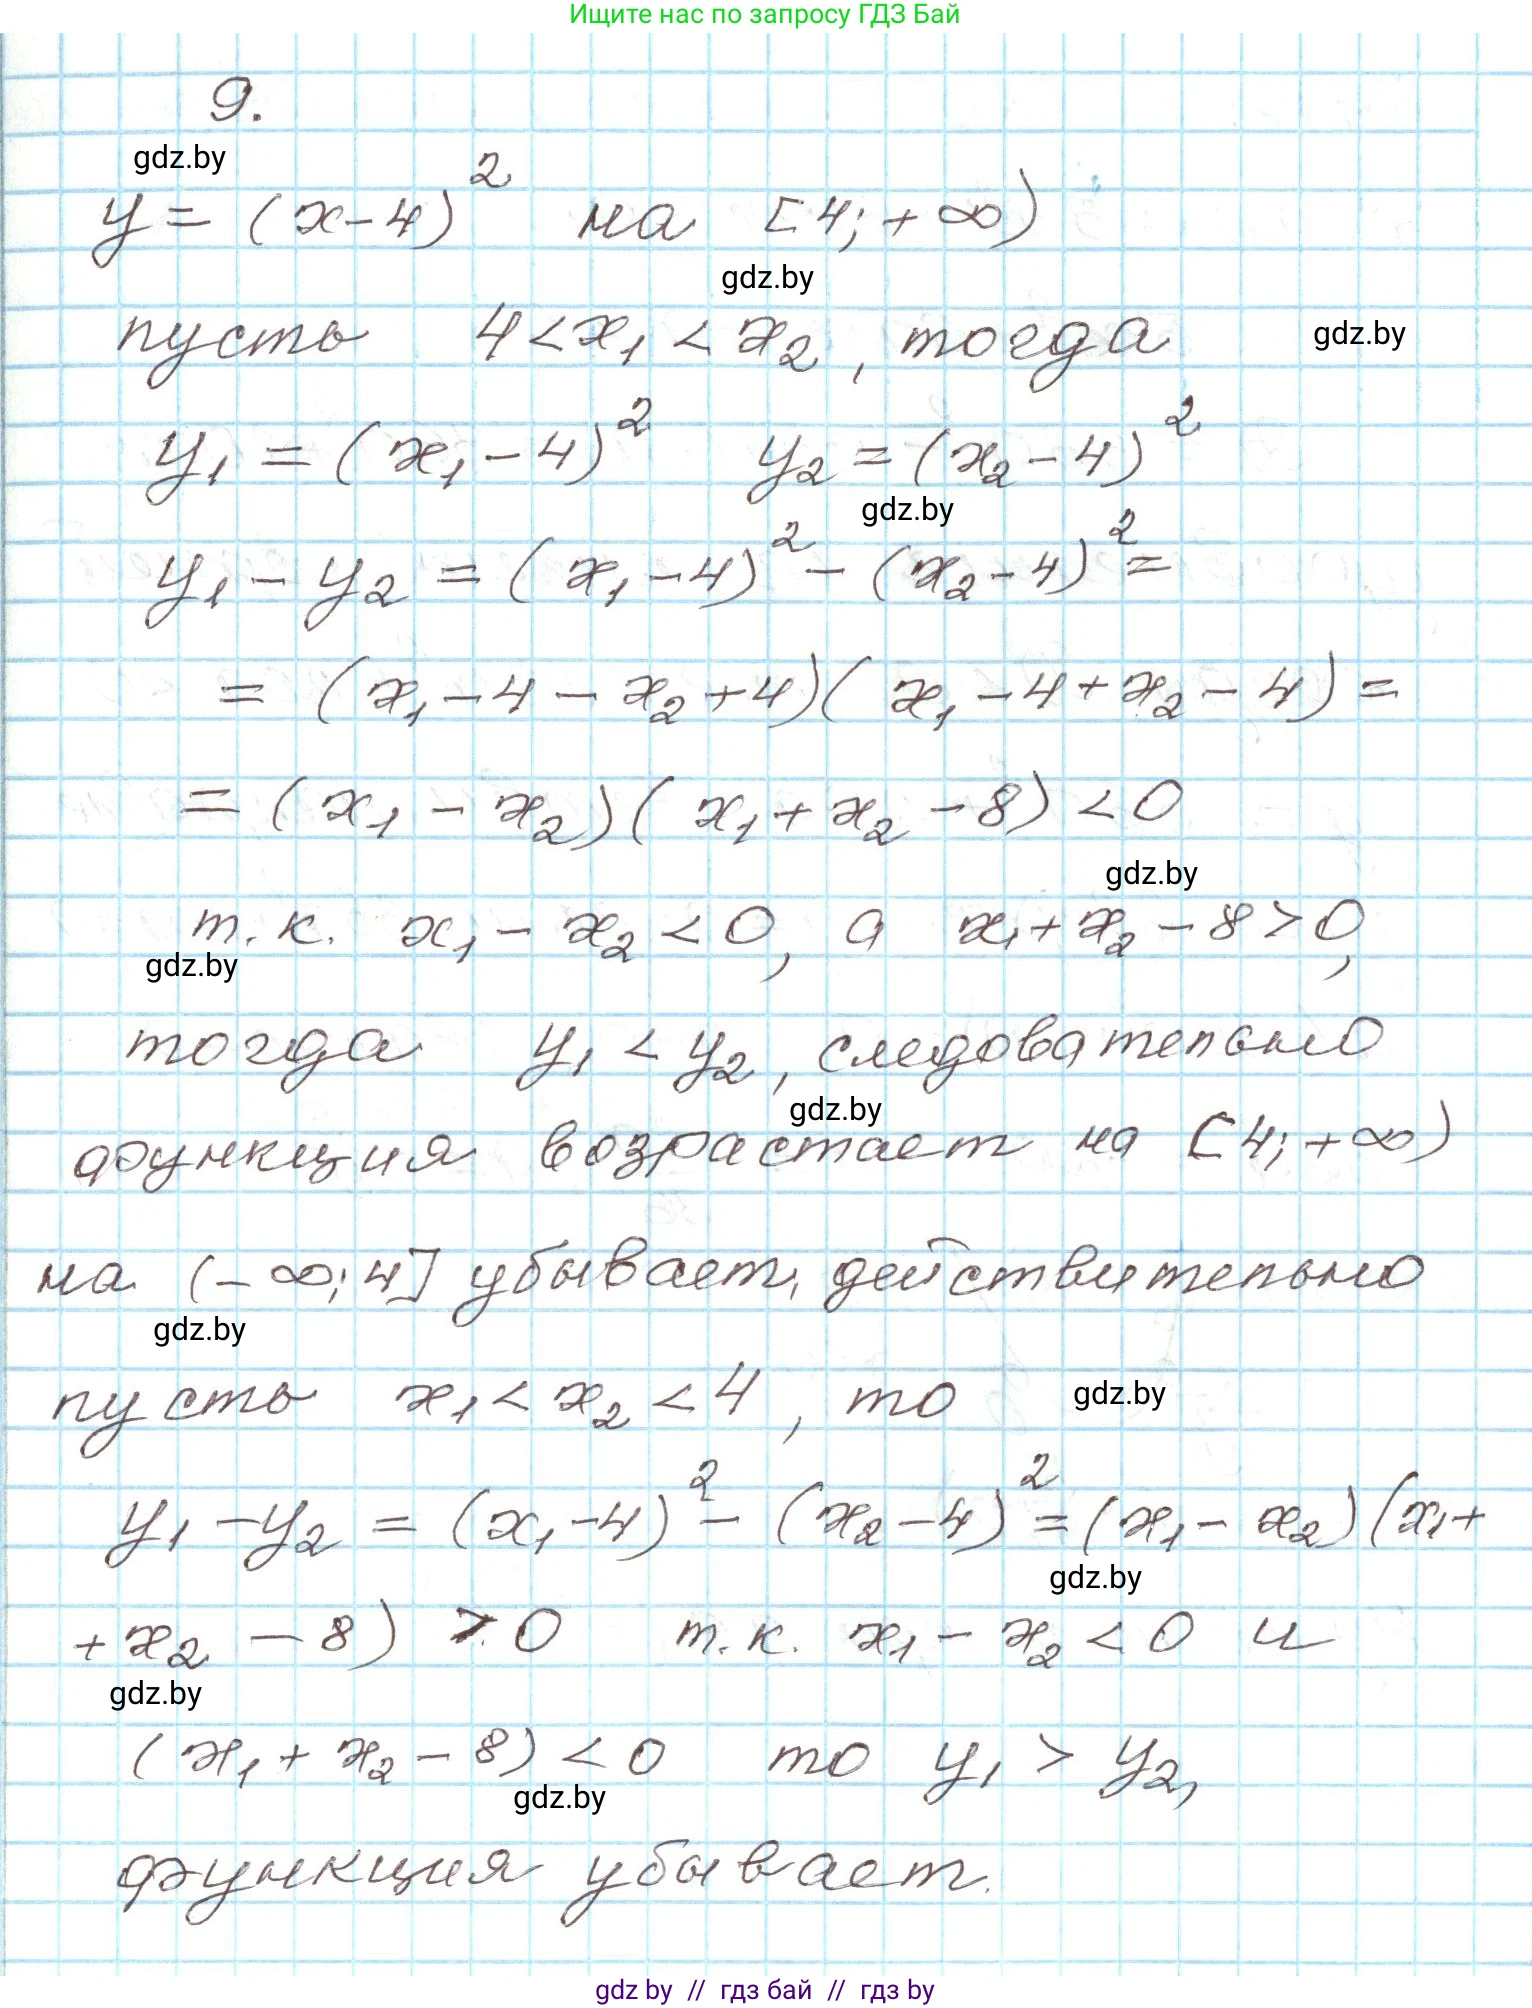 Ищите нас по запросу ГДЗ Бай
9.
gdz.by
y = (x-4)² на [4; +∞)
gdz.by
пусть 4 < x₁ < x₂, тогда gdz.by
y₁ = (x₁ - 4)² y₂ = (x₂ - 4)²
gdz.by
y₁ - y₂ = (x₁ - 4)² - (x₂ - 4)² =
= (x₁ - 4 - x₂ + 4)(x₁ - 4 + x₂ - 4) =
= (x₁ - x₂)(x₁ + x₂ - 8) < 0
gdz.by
т.к. x₁ - x₂ < 0, а x₁ + x₂ - 8 > 0,
gdz.by
тогда y₁ < y₂, следовательно
gdz.by
функция возрастает на [4; +∞)
на (-∞; 4] убывает, действительно
gdz.by
пусть x₁ < x₂ < 4, то gdz.by
y₁ - y₂ = (x₁ - 4)² - (x₂ - 4)² = (x₁ - x₂)(x₁ +
gdz.by
+ x₂ - 8) > 0 т.к. x₁ - x₂ < 0 и
gdz.by
(x₁ + x₂ - 8) < 0 то y₁ > y₂,
gdz.by
функция убывает.
gdz by // гдз бай // гдз by